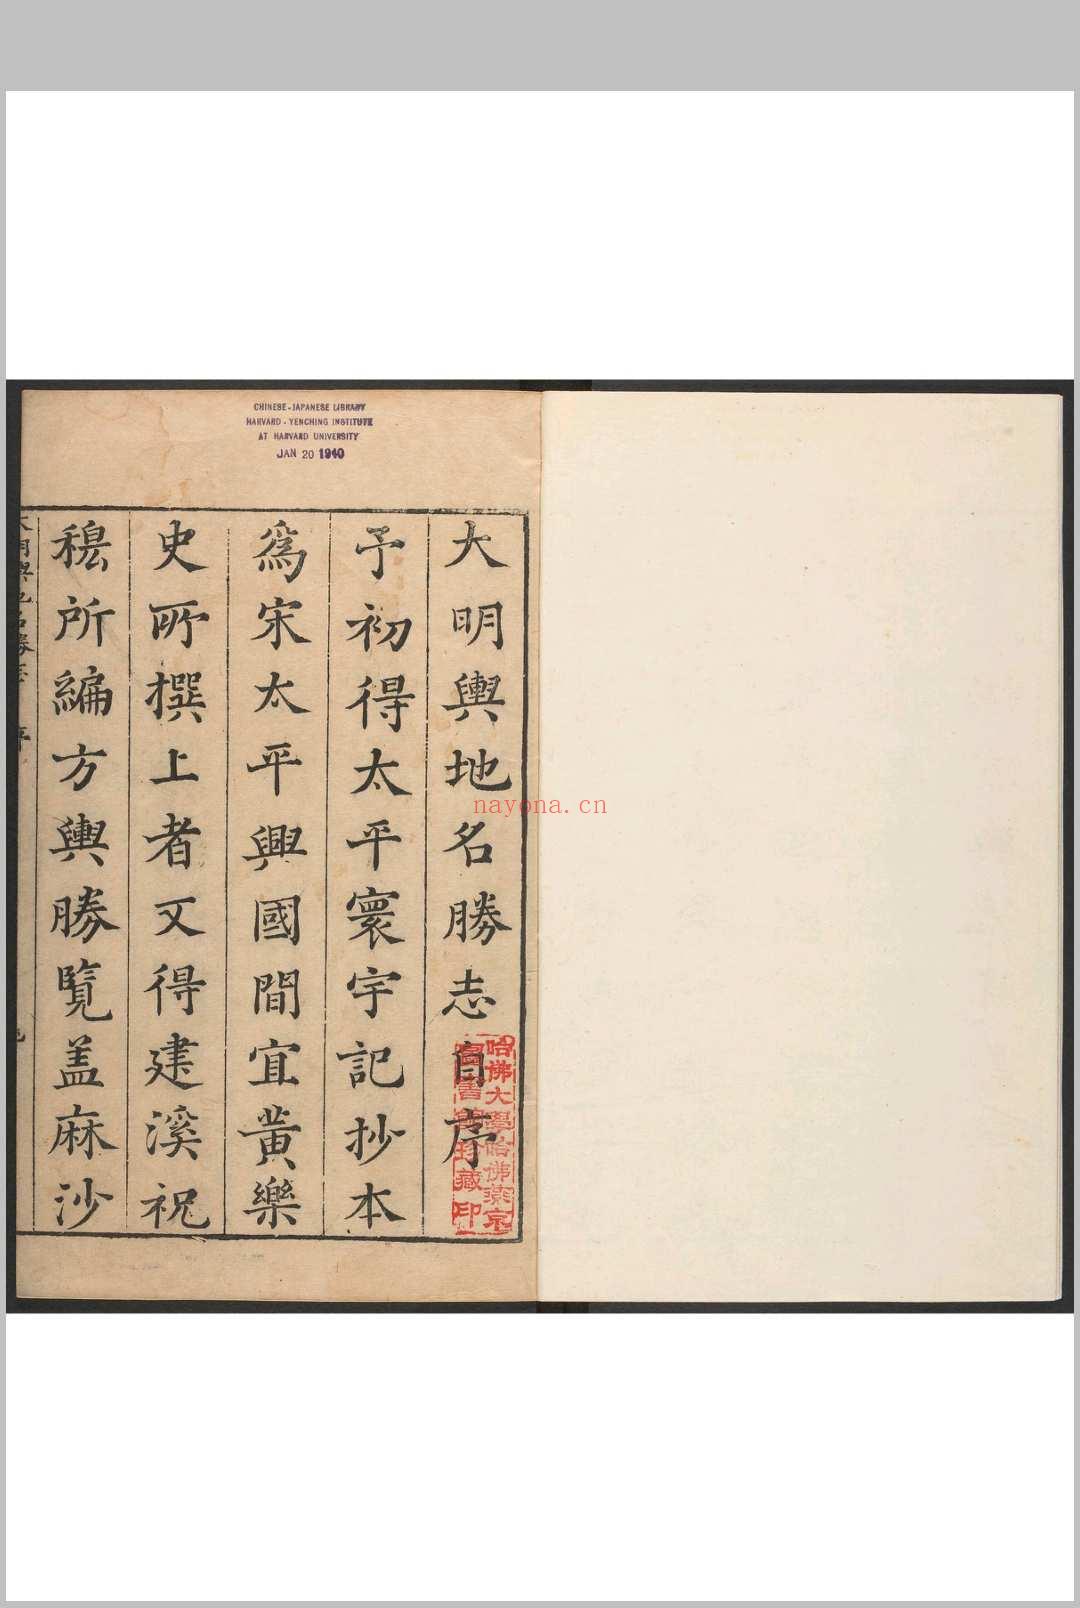 CHINESE-JAPANESE LIBRARY
HARVARD-YENCHING INSTITUTE
AT HARVARD UNIVERSITY
JAN 20 1940
大明輿地名勝志自序
予初得太平寰宇記抄本
爲宋太平興國間宜黄樂
史所撰上者又得建溪祝
穆所編方輿勝覽盖麻沙
哈佛大學哈佛燕京
圖書館珍藏印
nayona.cn